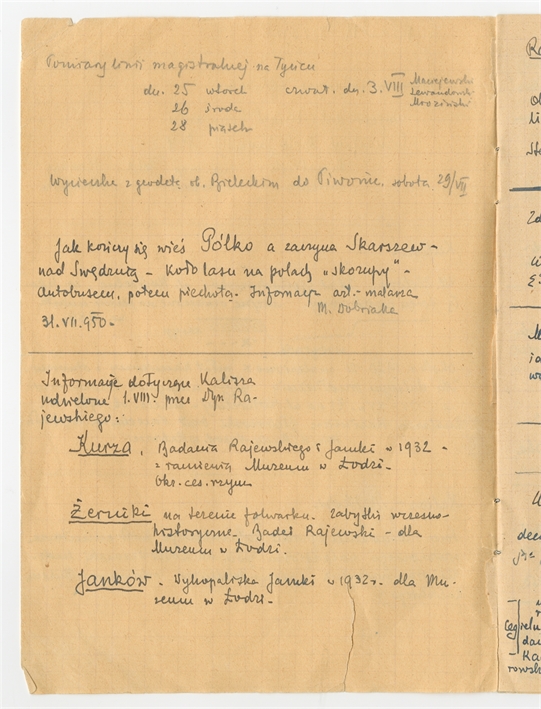 Pomiary linii magistralnej na Tyńcu
dn. 25 wtorek czwart. dn. 3.VIII
26 środa
28 piątek
Mroziński
Wycieczka z geodetą ob. Bieleckim do Piwonic, sobota 29/VII
Jak kończy się wieś Pólko a zaczyna Skarszew -
nad Swędrnią - Koło lasu na polach „skorupy" -
Autobusem, potem piechotą. Informacja art. - malarza
M. Dobriaka
31.VII.950 -
Informacje dotyczące Kalisza
udzielone 1.VIII. przez Dyr. Ra-
jewskiego:
Kurza. Badania Rajewskiego i Jamki w 1932 -
z ramienia Muzeum w Łodzi -
Okr. ces. rzym
Żerniki na terenie folwarku. Zabytki wczesno-
historyczne. Badał Rajewski - dla
Muzeum w Łodzi.
Janków. Wykopaliska Jamki w 1932 r. dla Mu-
zeum w Łodzi -